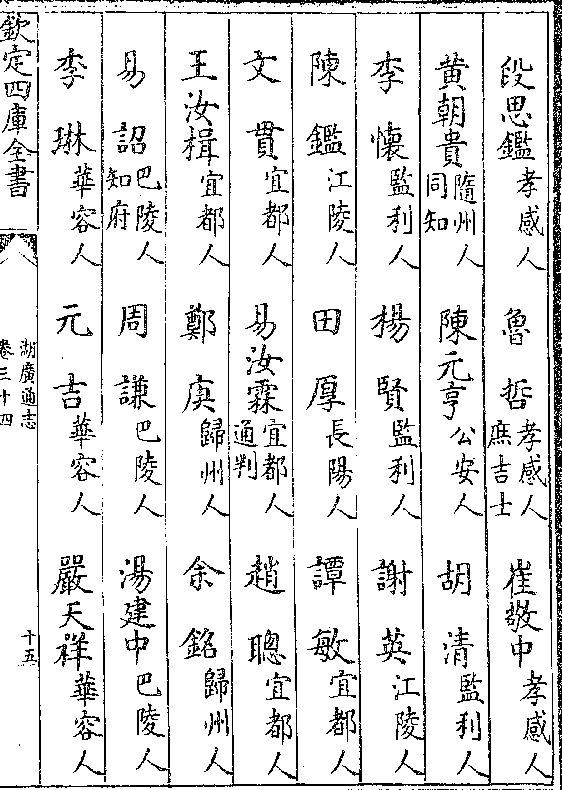 段思鑑孝感人 魯哲孝感人庶吉士 崔敬中孝感人
黄朝貴隨州人同知 陳元亨公安人 胡清監利人
李懷監利人 楊賢監利人 謝英江陵人
陳鑑江陵人 田厚長陽人 譚敏宜都人
文貫宜都人 易汝霖宜都人通判 趙聰宜都人
王汝楫宜都人 鄭虞歸州人 余銘歸州人
易詔巴陵人知府 周謙巴陵人 湯建中巴陵人
李琳華容人 元吉華容人 嚴天祥華容人
欽定四庫全書 湖廣通志卷三十四 十五